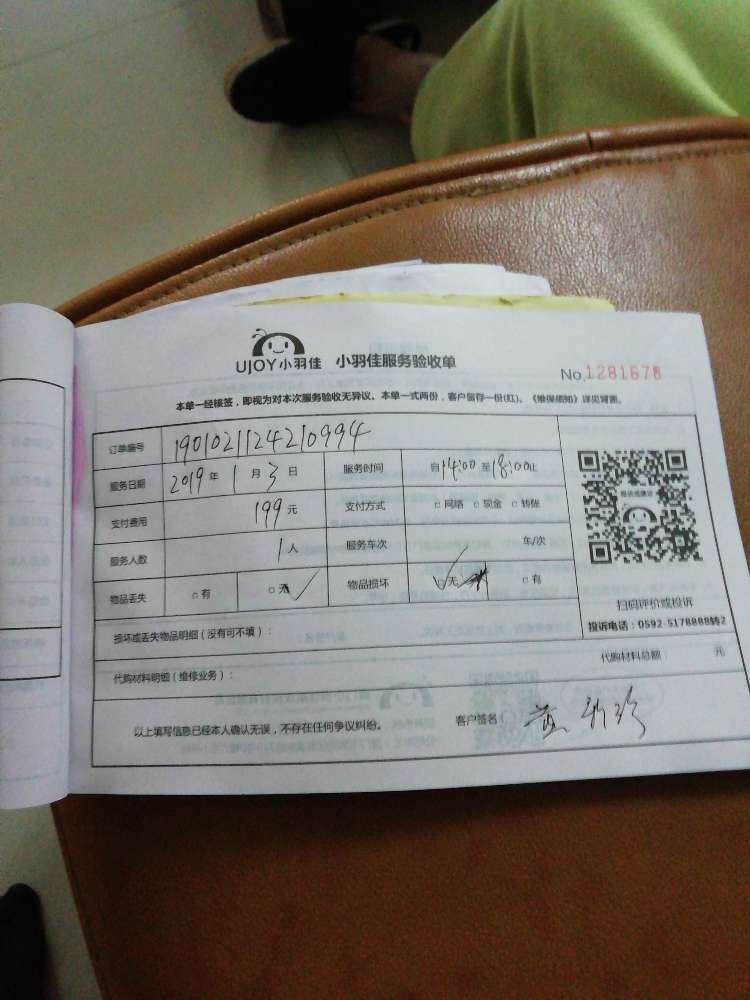 UJOY小羽佳 小羽佳服务验收单
No.1281678
本单一经接签，即视为对本次服务验收无异议。本单一式两份，客户留存一份(红)。《维保须知》详见背面。
订单编号 190102112421​0994
服务日期 2019年1月3日 服务时间 自14:00至18:00止
支付费用 199元 支付方式 □网络 □现金 □转账
服务人数 1人 服务车次 车/次
物品丢失 □有 □无✓ 物品损坏 □✓无 □有
扫码评价或投诉
投诉电话：0592-5178888转2
损坏或丢失物品明细（没有可不填）：
代购材料明细（维修业务）： 代购材料总额： 元
以上填写信息已经本人确认无误，不存在任何争议纠纷。 客户签名：